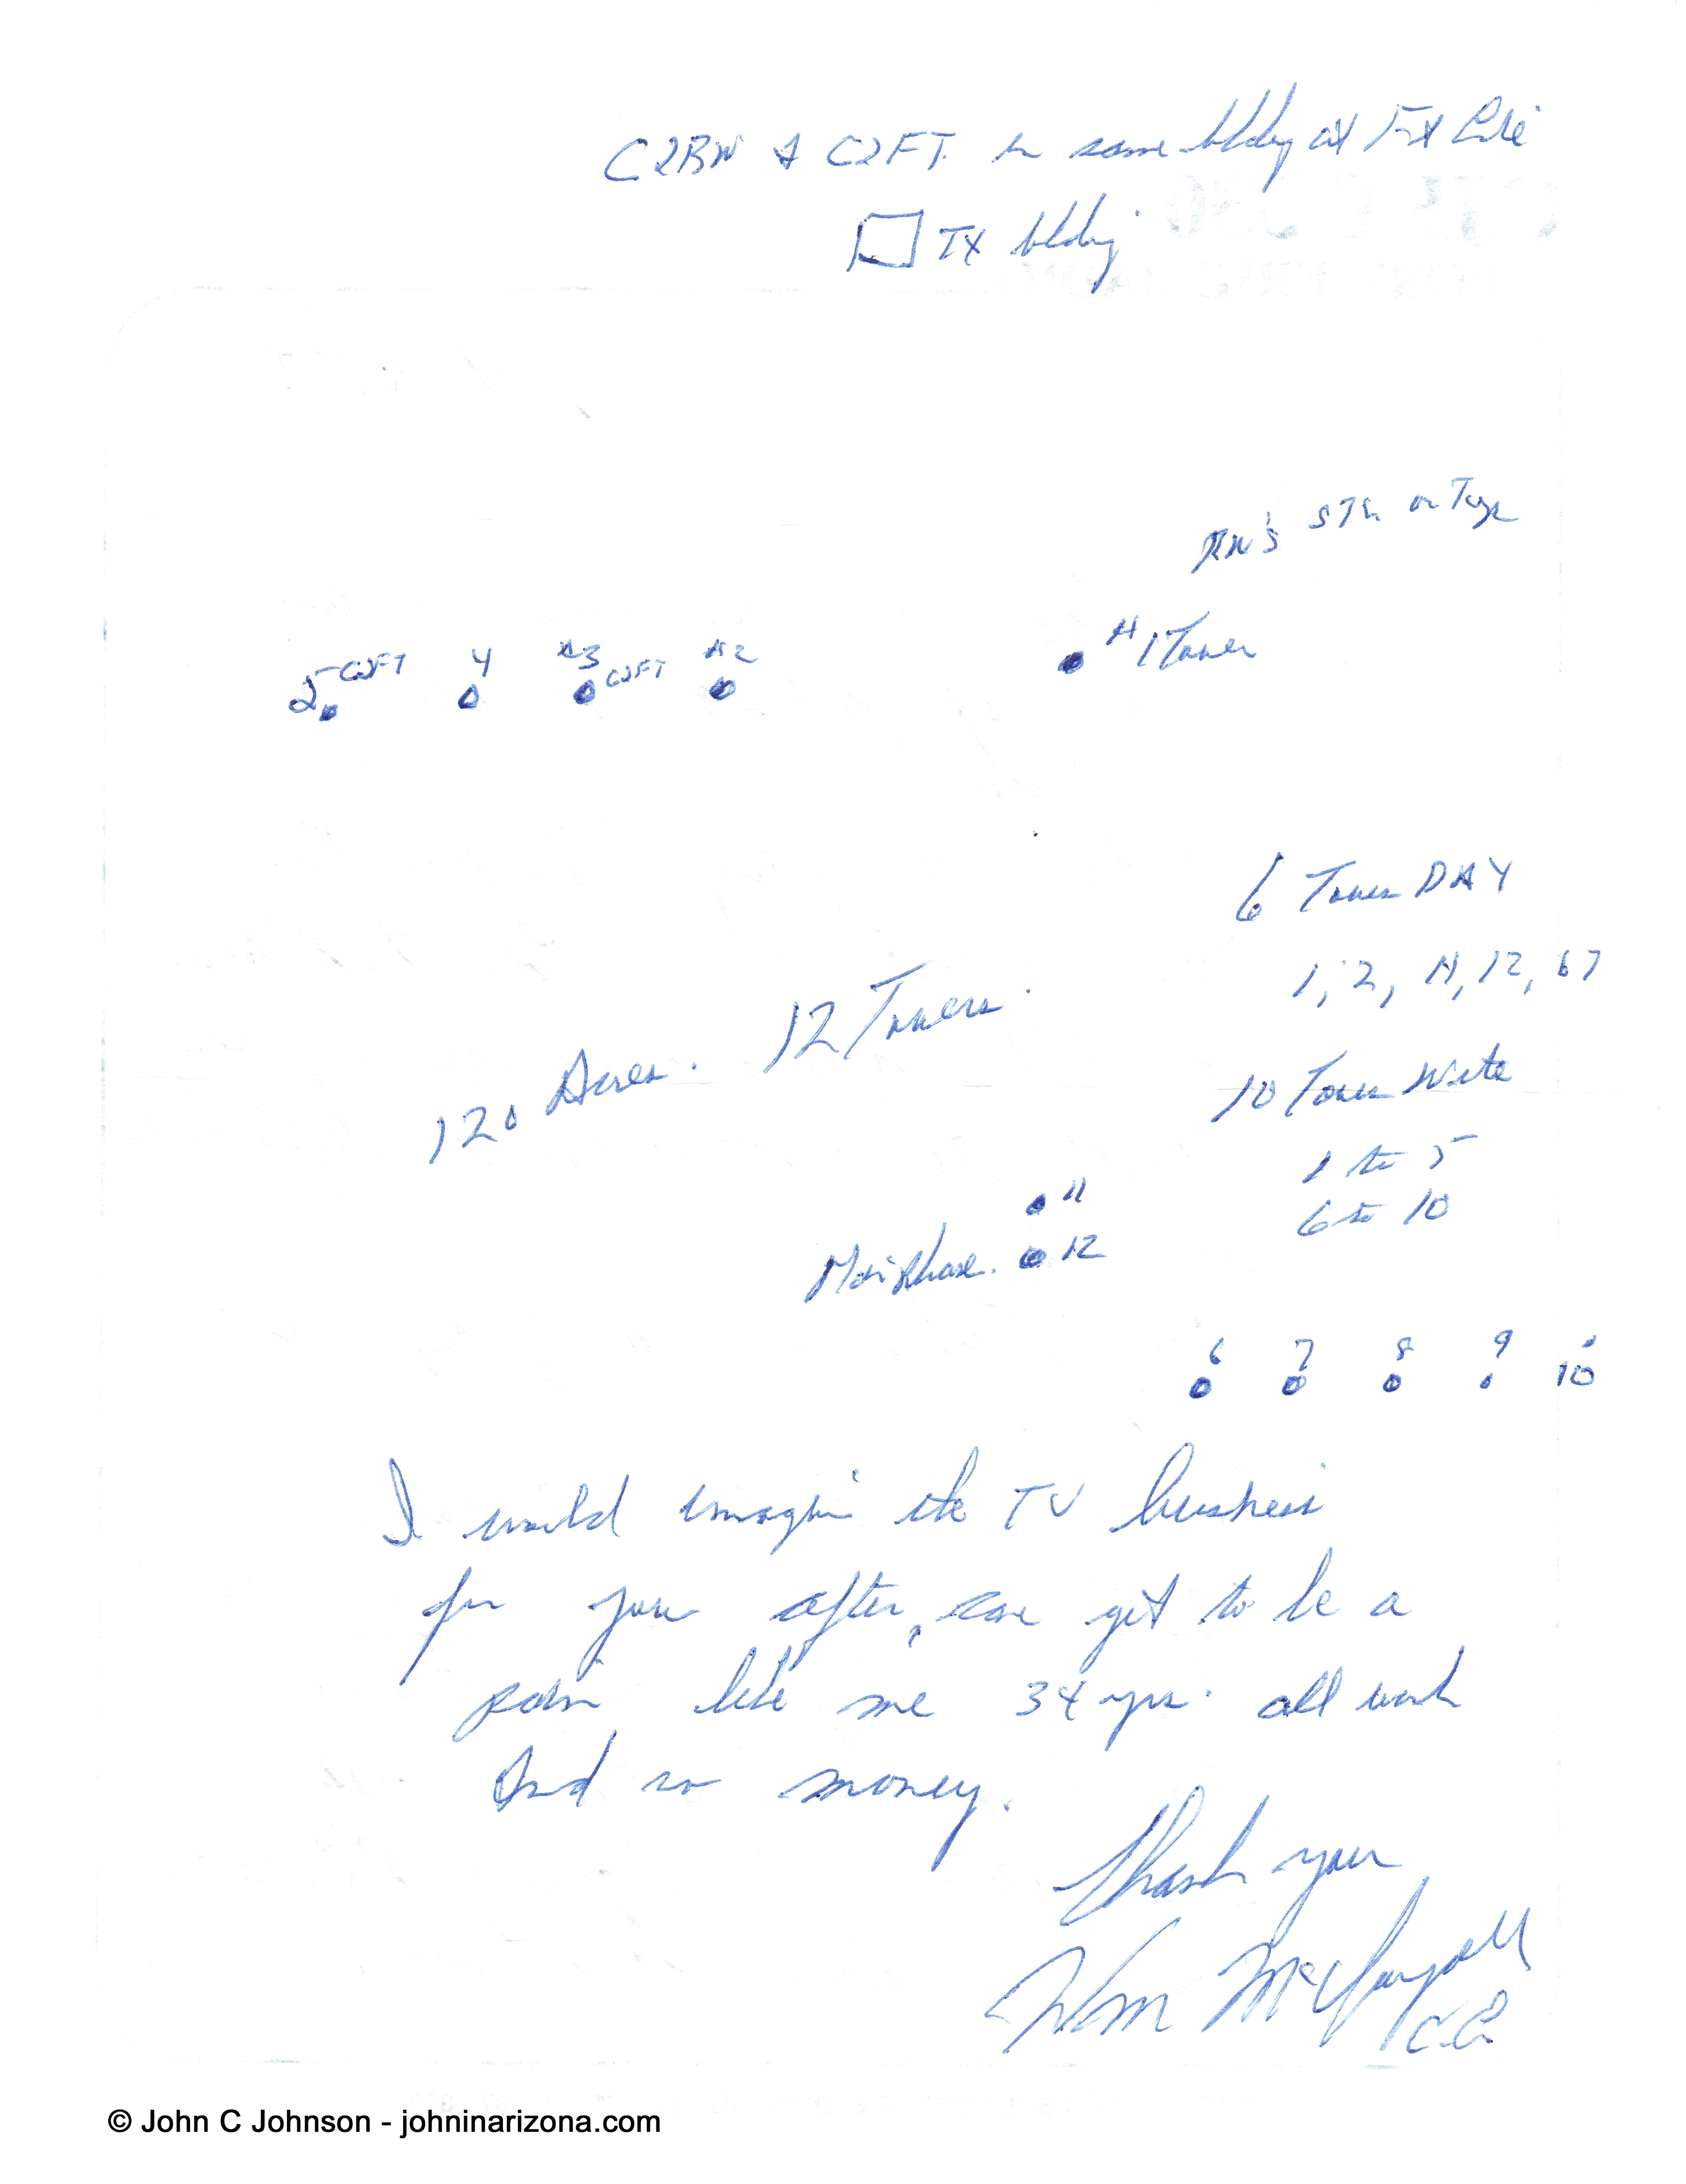 C2BW & C2FT in same bldg at Fort Erie
TX bldg
5 C2FT 4 #3 C2FT #2
#1 Tower
6 Tower DAY
1, 2, 11, 12, 6 7
120 Acres. 12 Towers.
10 Tower Nite
1 to 5
6 to 10
11
12
6 7 8 9 10
I would imagin the TV business
for you after, can get to be a
pain like me 34 yrs. all work
And no money.
Thank you
Wm
C.E.
© John C Johnson - johninarizona.com